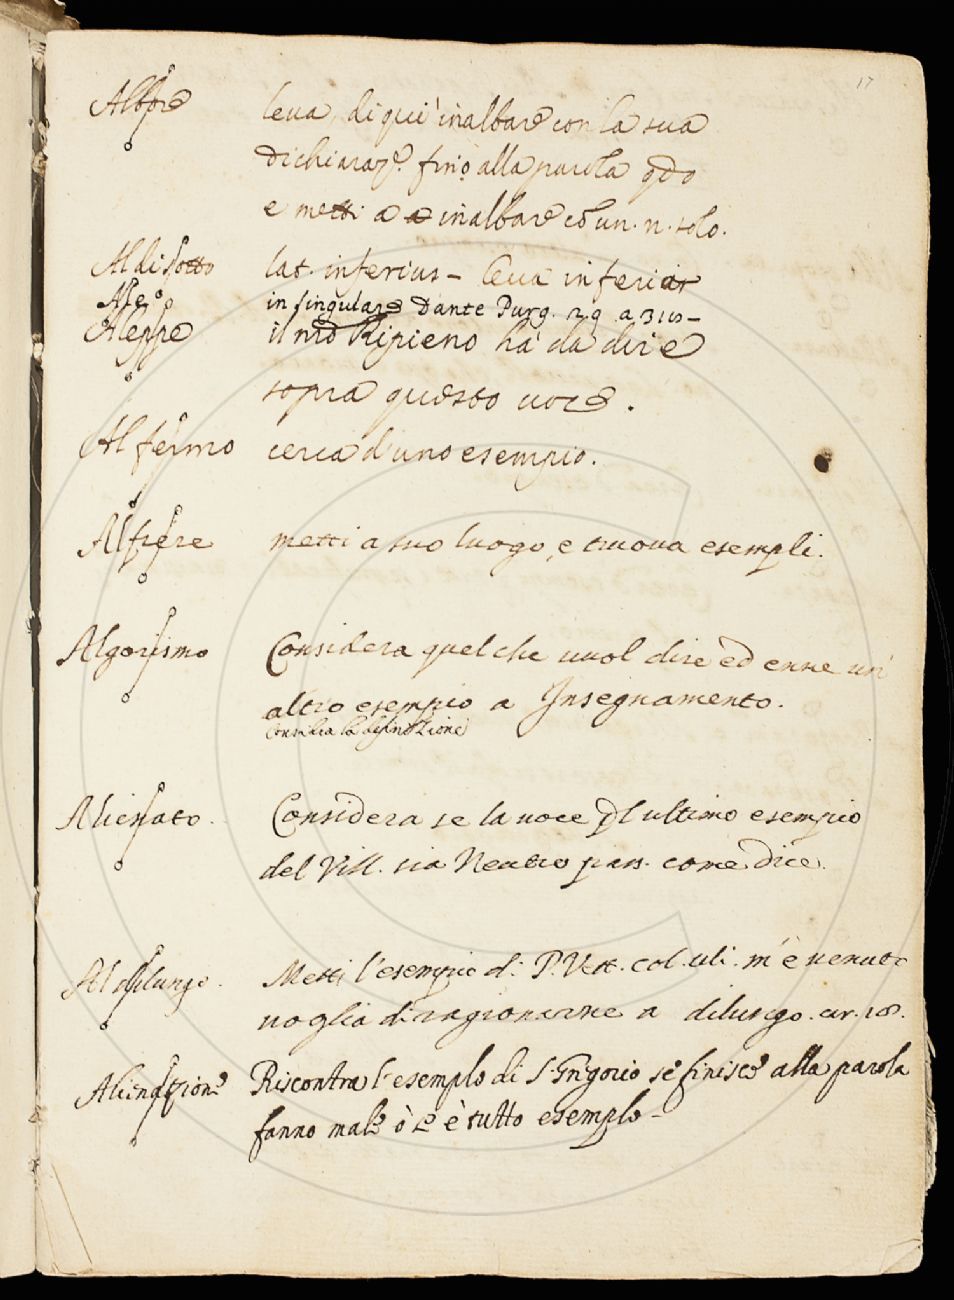 17
Albore leva di qui inalbare con la sua
dichiaraz.e fino alla parola qdo
e metti a inalbare cō un. n. solo.
Al di sotto lat. inferius - leva inferiar
in singulare Dante Purg. 29 a 310 -
Aleppe il nro Ripieno ha da dire
sopra questo uoce.
Al fermo cerca d'uno esempio.
Alfiere metti a suo luogo, e truova esempli.
Algorismo Considera quel che vuol dire ed enne un'
altro esempio a Insegnamento.
Consilia la definizione
Alienato. Considera se la uoce dl ultimo esempio
del Vill. sia Neutro pass. come dice.
Al dilungo. Metti l'esempio di P. Vett. col. uli. m'è venuto
voglia di ragionarne a dilungo. car. 108.
Alienazione Riscontra l'esemplo di S. Grigorio se finisce alla parola
fanno male ò è tutto esemplo -